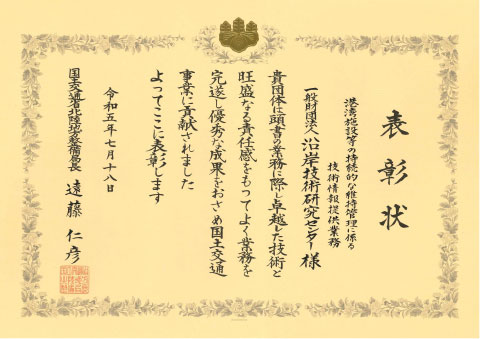 表彰状
港湾施設等の持続的な維持管理に係る
技術情報提供業務
一般財団法人 沿岸技術研究センター 様
貴団体は頭書の業務に際し卓越した技術と
旺盛なる責任感をもってよく業務を
完遂し優秀な成果をおさめ国土交通
事業に貢献されました
よってここに表彰します
令和五年七月十八日
国土交通省北陸地方整備局長 遠藤 仁彦